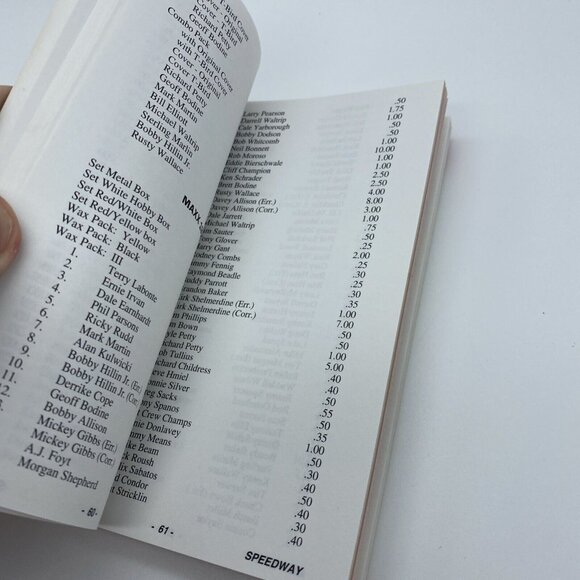 T-Bird Cover
Cover - Original
Cover - T-Bird
Richard Petty
Geoff Bodine
Combo Pack
with Original Cover
with T-Bird Cover
Cover - Original
Cover T-Bird
Richard Petty
Geoff Bodine
Mark Martin
Bill Elliott
Michael Waltrip
Sterling Marlin
Bobby Hillin Jr.
Rusty Wallace
MAXX
Set Metal Box
Set White Hobby Box
Set Red/White Box
Set Red/Yellow box
Wax Pack: Yellow
Wax Pack: Black
Wax Pack: III
1. Terry Labonte
2. Ernie Irvan
3. Dale Earnhardt
4. Phil Parsons
5. Ricky Rudd
6. Mark Martin
7. Alan Kulwicki
8. Bobby Hillin Jr. (Err.)
9. Bobby Hillin Jr. (Cor.)
10. Derrike Cope
11. Geoff Bodine
12. Bobby Allison
Mickey Gibbs (Err.)
Mickey Gibbs (Corr.)
A.J. Foyt
Morgan Shepherd
- 60 -
Larry Pearson .50
Darrell Waltrip 1.75
Cale Yarborough 1.00
Bobby Dodson .50
Bob Whitcomb .50
Neil Bonnett 1.00
Rob Moroso 10.00
Eddie Bierschwale 1.00
Cliff Champion 1.00
Ken Schrader 2.50
Bren Bodine 2.50
Rusty Wallace 4.00
Davey Allison (Err.) 8.00
Davey Allison (Corr.) 3.00
Dale Jarrett 1.00
Michael Waltrip .75
Sauter .50
Tony Glover .25
Harry Gant 2.00
Rodney Combs .25
Jimmy Fennig .25
Raymond Beadle .30
Buddy Parrott .25
Brandon Baker .35
Kirk Shelmerdine (Err.)
Kirk Shelmerdine (Corr.) 1.00
Phillips 7.00
Bown .50
Kyle Petty .35
Richard Petty
Bob Tullius 1.00
Richard Childress 5.00
Steve Hmiel .40
Silver .40
Greg Sacks .50
Spanos .55
Crew Champs .50
Donlavey .35
Jimmy Means 1.00
Mike Beam .50
Jack Roush .30
Felix Sabatos .40
Condor .40
Stricklin .30
.40
- 61 -
SPEEDWAY